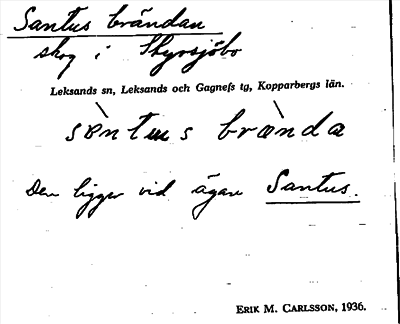 Santus brändan
skog i Styrsjöbo
Leksands sn, Leksands och Gagnefs tg, Kopparbergs län.
sàntus bræ̀nda
Den ligger vid ägan Santus.
ERIK M. CARLSSON, 1936.